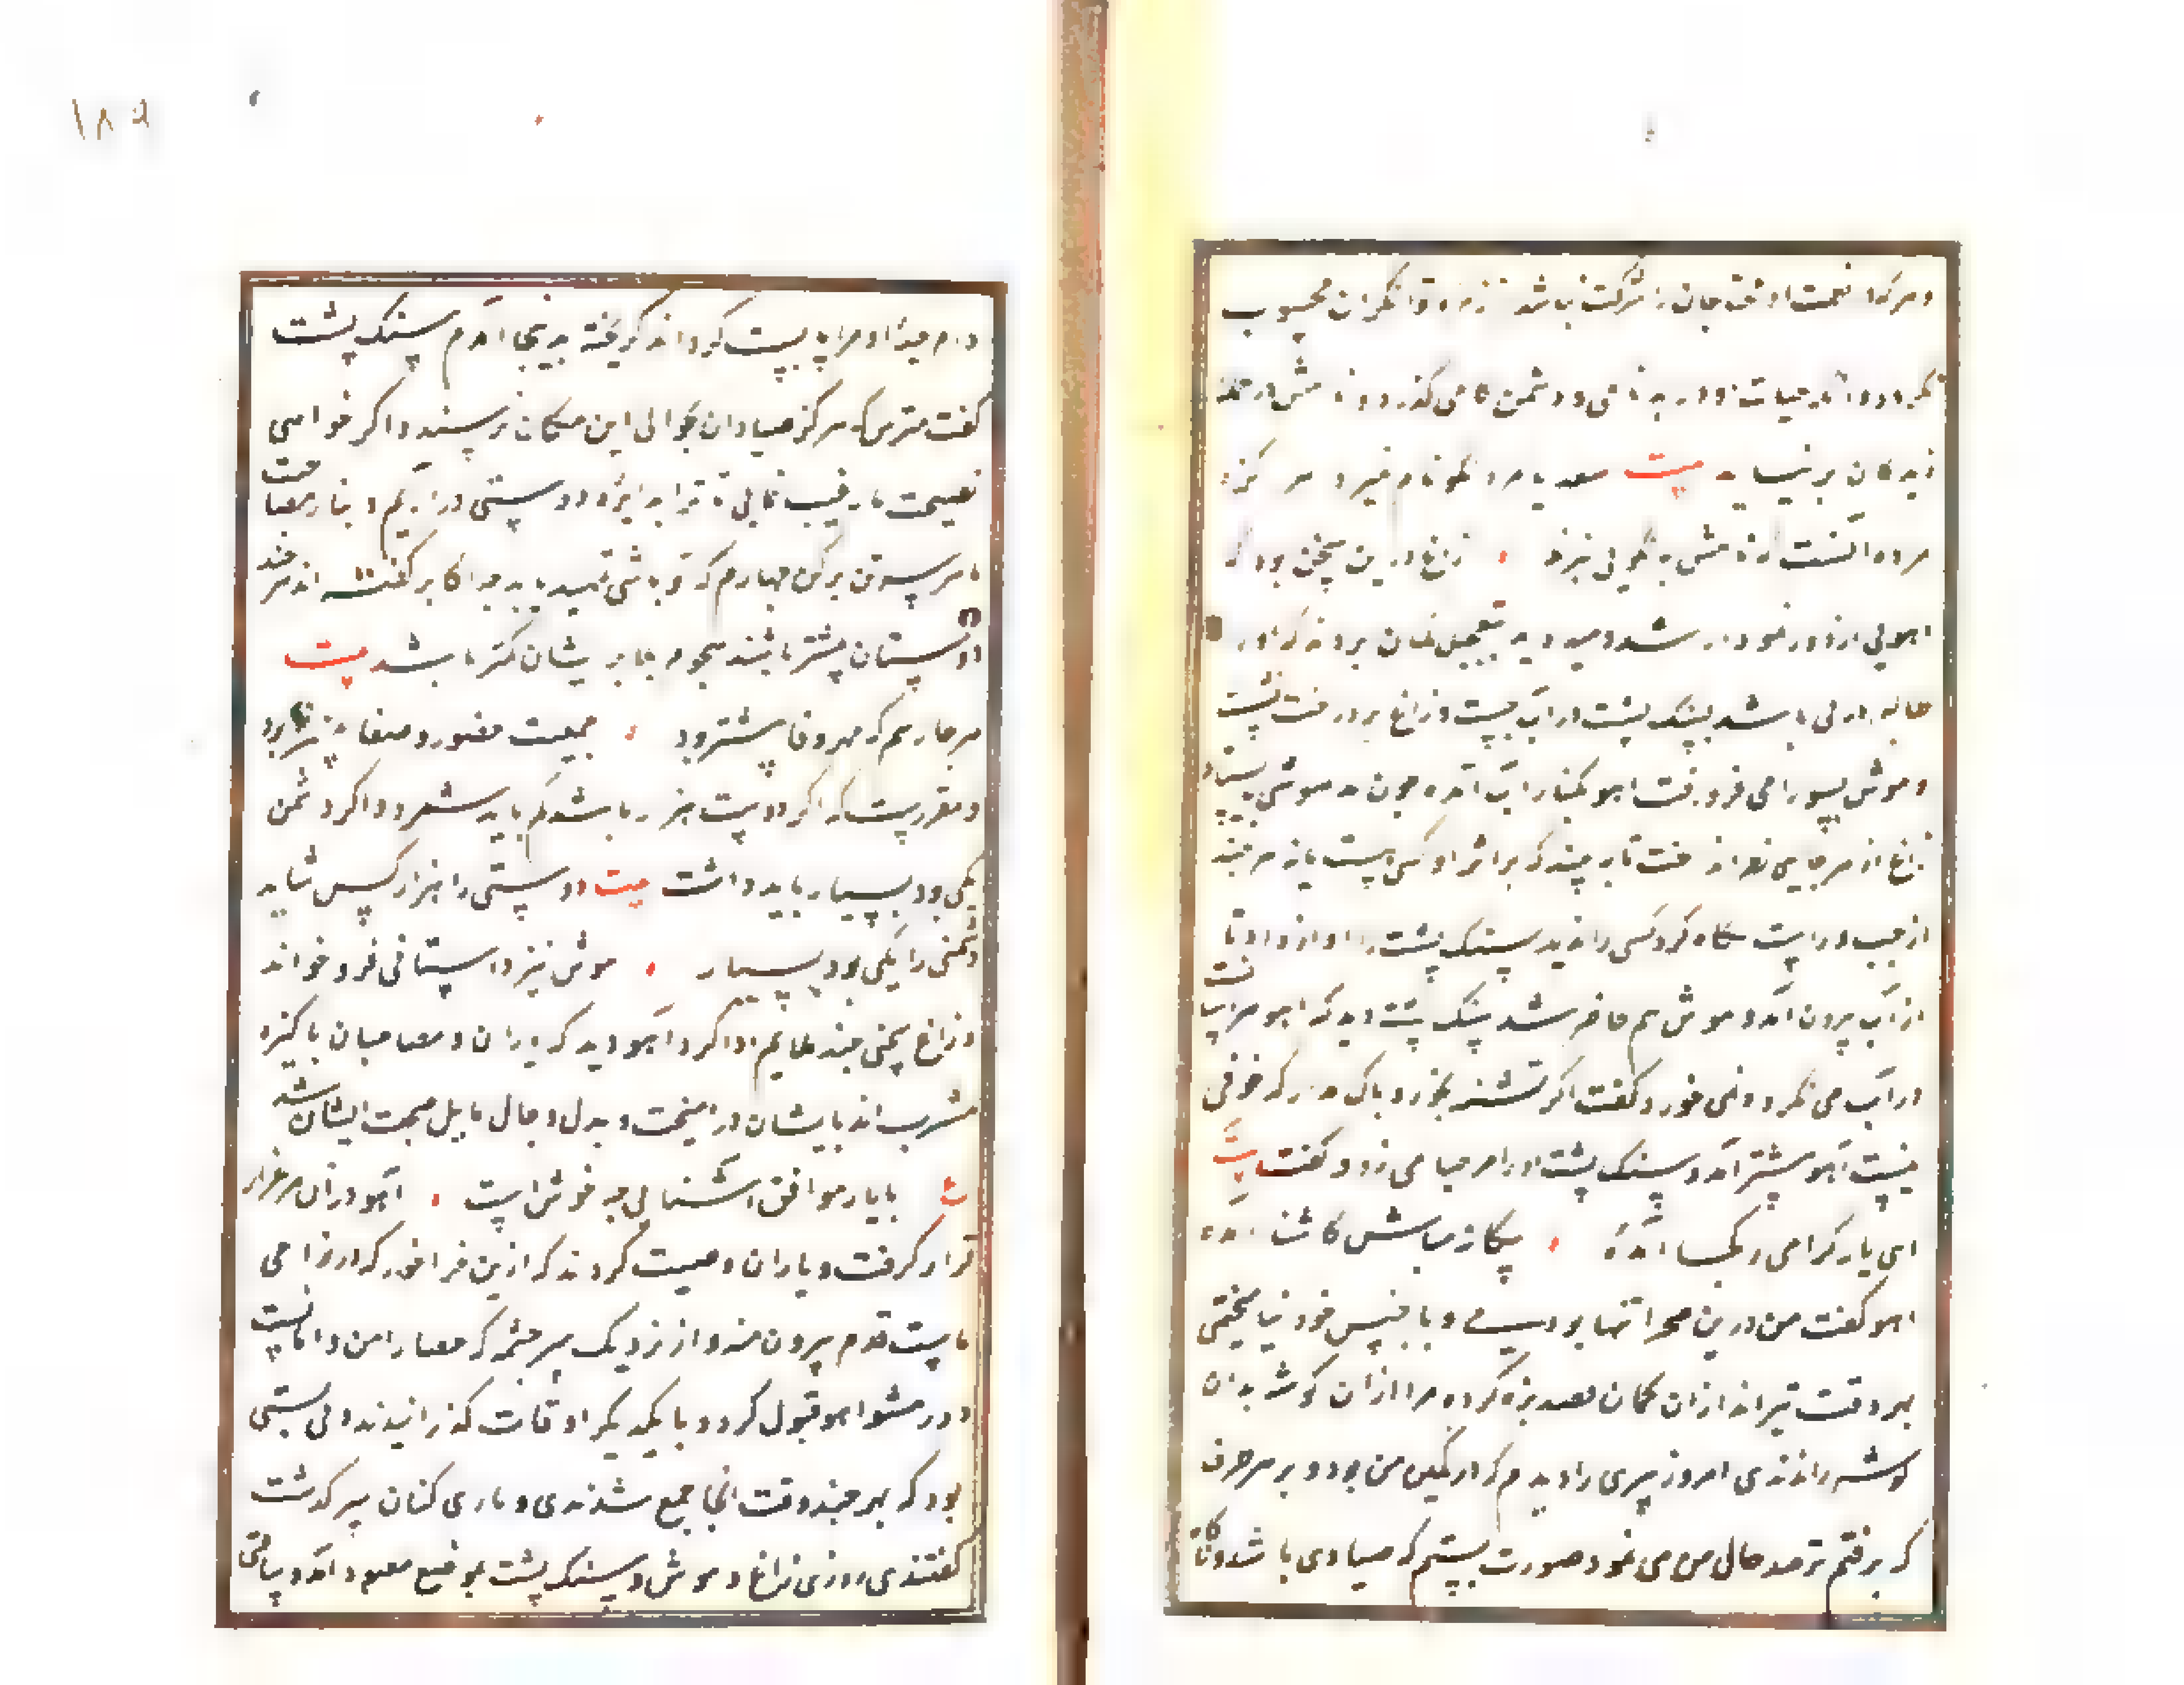 و هرکرا نعمت او محتاجان را شرکت نباشد در زمره توانکران محسوب
نکردد و انکه حیات او در بدنامی و دشمن کامی کذرد نامش در جمله
زندکان برنیاید بیت سعدیا مرد نکونام نمیرد هرکز
مرده انست که نامش به نکویی نبرند زاغ درین سخن بود که
اهویی از دور نمودار شد و میدوید بتعجیل کمان بردند که او را
طالبی در پی باشد سنک پشت در آب جست و زاغ بر درخت نشست
و موش بسوراخی فرو رفت اهو بکنار آب آمده چون مدهوشی بیستاد
زاغ از هر جایی نظر انداخت تا به بیند که بر اثر او کسی است یا نه هرچند
از چپ و راست نکاه کرد کسی را ندید سنک پشت را اواز داد تا
از آب بیرون آمد و موش هم حاضر شد سنک پشت دید که اهو هراسانست
در آب می نکرد و نمی خورد کفت اکر تشنه بخور و باک مدار که خوفی
نیست آهو پیشتر آمد و سنک پشت او را مرحبا می زد و کفت بیت
ای یار کرامی ز کجا آمده بیکانه مباش کاشنا آمده
اهو کفت من درین صحرا تنها بودمی و با جنس خود نیامیختمی
هر وقت تیراندازان کمان قصد بزه کرده مرا ازان کوشه بدان
کوشه راندندی امروز پیری را دیدم که در کمین من بود و بر هر طرف
که برفتم ترصد حال من می نمود صورت بستم که صیادی باشد و ناکاه
دام حیله او مرا پای بست کرداند کریخته بدینجا آمدم سنک پشت
کفت مترس که هرکز صیادان بحوالی این مکان نرسیده و اکر خواهی
بصحبت ما رغبت نمایی تا ترا بدایره دوستی درآریم و بنای مصاحبت
ما هر سه تن برکن چهارم که تو باشی تمهید یابد چه اکابر کفته اند هرچند
دوستان بیشتر باشند هجوم بلا بر ایشان کمتر باشد بیت
هرجا رسم که مهر و وفا بیشتر بود جمعیت حضور و صفا بیشتر بود
و مقررست که اکر دوست هزار باشد کم باید شمرد و اکر دشمن
یکی بود بسیار باید داشت بیت دوستی را هزار کس شاید
دشمنی را یکی بود بسیار موش نیز داستانی فرو خواند
و زاغ سخنی چند ملایم ادا کرد آهو دید که یاران و مصاحبان باکیزه
مشرب اند با یشان درامیخت و بدل و جان مایل صحبت ایشان شد
با یار موافق آشنایی چه خوش است آهو دران مرغزار
قرار کرفت و یاران وصیت کردند که ازین چراخور که در نواحی
ماست قدم بیرون منه و از نزدیک سرچشمه که حصار امن و امانست
دور مشو اهو قبول کرد و با یکدیکر اوقات کذرانیدند و نی بستی
بود که هر چند وقت انجا جمع شدندی و بازی کنان سرکذشت
کفتندی روزی زاغ و موش و سنک پشت بموضع معهود آمدند و ساعتی